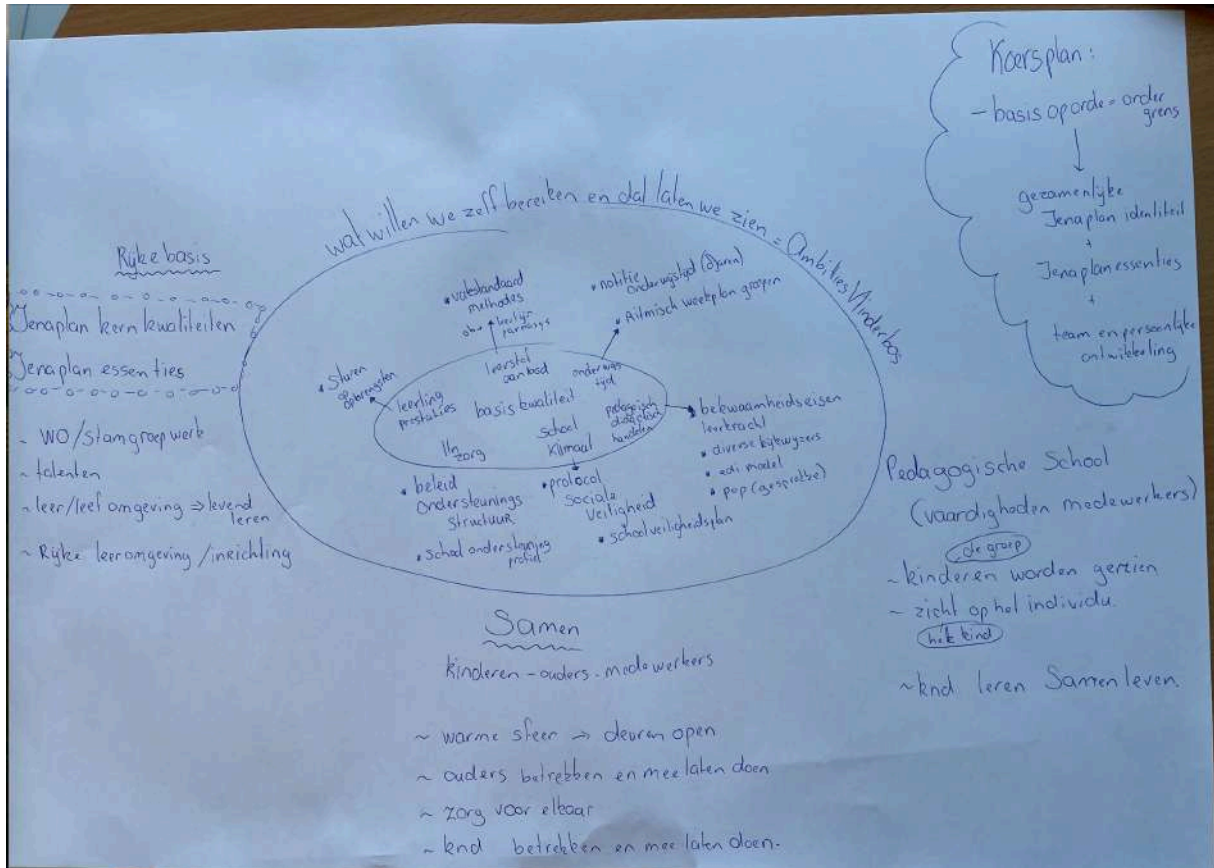 Koersplan:
- basis op orde = onder
grens
gezamenlijke
Jenaplan identiteit
+
Jenaplanessenties
+
team en persoonlijke
ontwikkeling
wat willen we zelf bereiken en dat laten we zien = Ambities Vlinderbos
Rijke basis
Jenaplan kernkwaliteiten
Jenaplan essenties
~ WO/stamgroepwerk
~ talenten
~ leer/leef omgeving ⇒ levend
leren
~ Rijke leeromgeving/inrichting
• vakstandaard
methodes
• notitie
onderwijstijd (uren)
• Ritmisch weekplan groepen
• Sturen
op
opbrengsten
leerling
prestaties
leerstof
aanbod
onderwijs
tijd
basiskwaliteit
pedagogisch
didactisch
handelen
School
klimaat
lln
zorg
• bekwaamheidseisen
leerkracht
• diverse kijkwijzers
• edi model
• pop (gesprekke)
• beleid
Ondersteunings
structuur
• School ondersteuning
profiel
• protocol
sociale
veiligheid
• schoolveiligheidsplan
Pedagogische School
(vaardigheden medewerkers)
de groep
~ kinderen worden gezien
~ zicht op het individu.
het kind
~ knd leren Samenleven.
Samen
kinderen - ouders - medewerkers
~ warme sfeer → deuren open
~ ouders betrekken en mee laten doen
~ zorg voor elkaar
~ knd betrekken en mee laten doen.